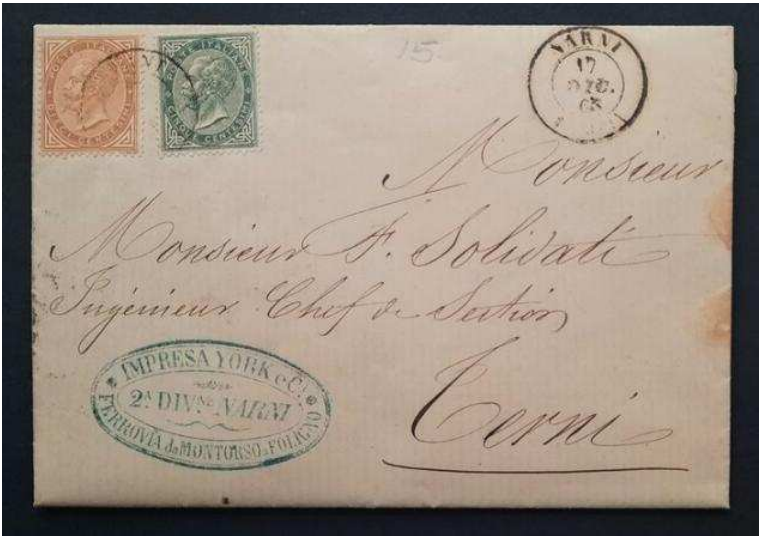 POSTE ITALIANE
DIECI CENTESIMI
POSTE ITALIANE
CINQUE CENTESIMI
15.
NARNI
17
DIC.
65
Monsieur
Monsieur F. Solidati
Ingénieur Chef de Section
Terni
IMPRESA YORK e C.
2ᴬ DIVNE NARNI
FERROVIA da MONTORSO a FOLIGNO